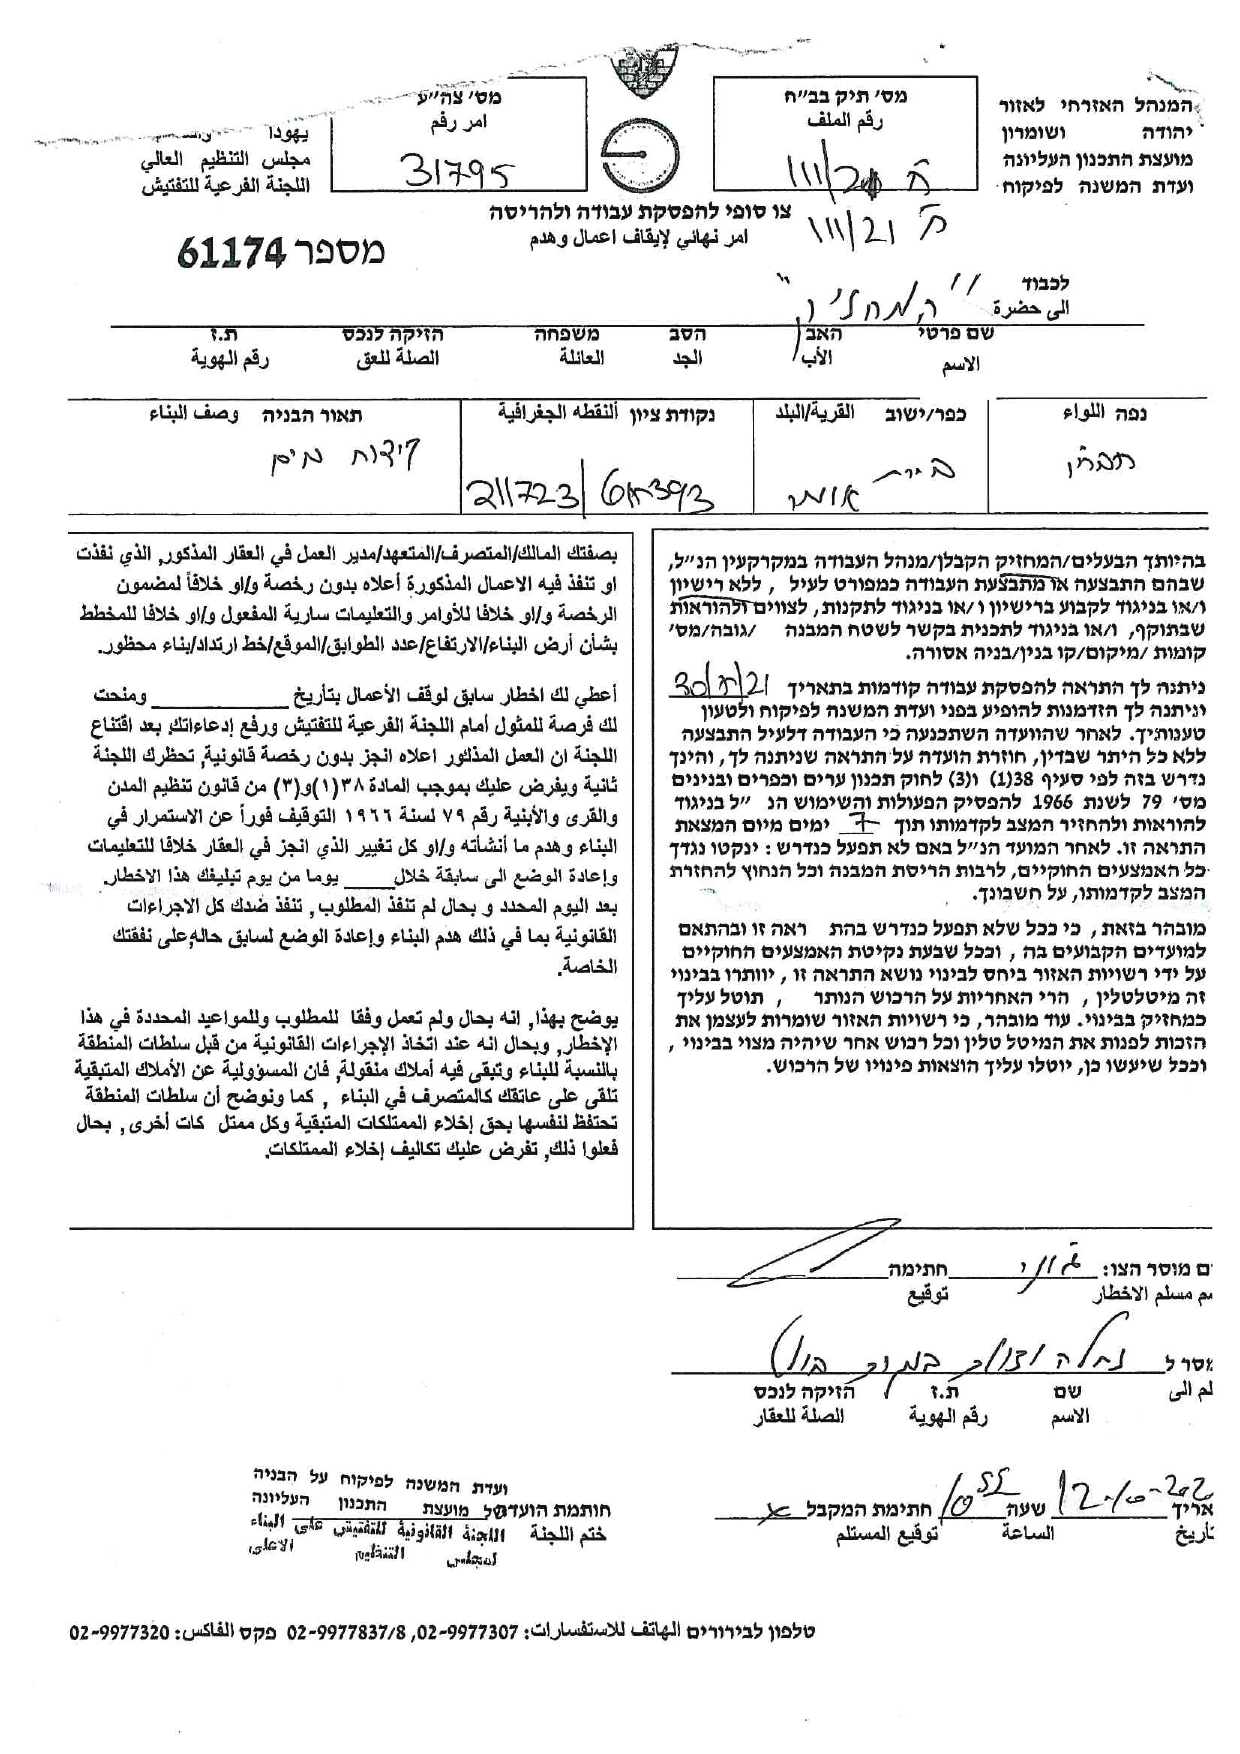 המנהל האזרחי לאזור
יהודה ושומרון
מועצת התכנון העליונה
ועדת המשנה לפיקוח
מס׳ תיק בב״ח
رقم الملف
מס׳ צה״ע
امر رقم
31795
يهودا
مجلس التنظيم العالي
اللجنة الفرعية للتفتيش
צו סופי להפסקת עבודה ולהריסה
امر نهائي لإيقاف اعمال وهدم
ח 111/21
מספר 61174
לכבוד
الى حضرة
"המחזיק"
שם פרטי האב הסב משפחה הזיקה לנכס ת.ז
الاسم الأب الجد العائلة الصلة للعق رقم الهوية
נפה اللواء
חברון
כפר/ישוב القرية/البلد
בית
אומר
נקודת ציון ألنقطه الجغرافية
211723
תאור הבניה وصف البناء
קידוח מים
בהיותך הבעלים/המחזיק הקבלן/מנהל העבודה במקרקעין הנ״ל,
שבהם התבצעה או מתבצעת העבודה כמפורט לעיל , ללא רישיון
ו/או בניגוד לקבוע ברישיון ו/או בניגוד לתקנות, לצווים ולהוראות
שבתוקף, ו/או בניגוד לתכנית בקשר לשטח המבנה /גובה/מס׳
קומות /מיקום/קו בנין/בניה אסורה.
ניתנה לך התראה להפסקת עבודה קודמות בתאריך
וניתנה לך הזדמנות להופיע בפני ועדת המשנה לפיקוח ולטעון
טענותיך. לאחר שהוועדה השתכנעה כי העבודה דלעיל התבצעה
ללא כל היתר שבדין, חוזרת הועדה על התראה שניתנה לך, והינך
נדרש בזה לפי סעיף 38(1) ו(3) לחוק תכנון ערים וכפרים ובנינים
מס׳ 79 לשנת 1966 להפסיק הפעולות והשימוש הנ ״ל בניגוד
להוראות ולהחזיר המצב לקדמותו תוך 7 ימים מיום המצאת
התראה זו. לאחר המועד הנ״ל באם לא תפעל כנדרש : ינקטו נגדך
כל האמצעים החוקיים, לרבות הריסת המבנה וכל הנחוץ להחזרת
המצב לקדמותו, על חשבונך.
מובהר בזאת, כי ככל שלא תפעל כנדרש בהת ראה זו ובהתאם
למועדים הקבועים בה , וככל שבעת נקיטת האמצעים החוקיים
על ידי רשויות האזור ביחס לבינוי נושא התראה זו , יוותרו בבינוי
זה מיטלטלין , הרי האחריות על הרכוש הנותר , תוטל עליך
כמחזיק בבינוי. עוד מובהר, כי רשויות האזור שומרות לעצמן את
הזכות לפנות את המיטל טלין וכל רכוש אחר שיהיה מצוי בבינוי ,
וככל שיעשו כן, יוטלו עליך הוצאות פינויו של הרכוש.
بصفتك المالك/المتصرف/المتعهد/مدير العمل في العقار المذكور, الذي نفذت
او تنفذ فيه الاعمال المذكورة أعلاه بدون رخصة و/او خلافاً لمضمون
الرخصة و/او خلافا للأوامر والتعليمات سارية المفعول و/او خلافا للمخطط
بشأن أرض البناء/الارتفاع/عدد الطوابق/الموقع/خط ارتداد/بناء محظور.
أعطي لك اخطار سابق لوقف الأعمال بتأريخ ____________ ومنحت
لك فرصة للمثول أمام اللجنة الفرعية للتفتيش ورفع إدعاءاتك, بعد اقتناع
اللجنة ان العمل المذكور اعلاه انجز بدون رخصة قانونية, تحظرك اللجنة
ثانية ويفرض عليك بموجب المادة ٣٨(١)و(٣) من قانون تنظيم المدن
والقرى والأبنية رقم ٧٩ لسنة ١٩٦٦ التوقيف فوراً عن الاستمرار في
البناء وهدم ما أنشأته و/او كل تغيير الذي انجز في العقار خلافا للتعليمات
وإعادة الوضع الى سابقة خلال _____ يوما من يوم تبليغك هذا الاخطار.
بعد اليوم المحدد و بحال لم تنفذ المطلوب, تنفذ ضدك كل الاجراءات
القانونية بما في ذلك هدم البناء وإعادة الوضع لسابق حاله, على نفقتك
الخاصة.
يوضح بهذا, انه بحال ولم تعمل وفقا للمطلوب وللمواعيد المحددة في هذا
الإخطار, وبحال انه عند اتخاذ الإجراءات القانونية من قبل سلطات المنطقة
بالنسبة للبناء وتبقى فيه أملاك منقولة, فان المسؤولية عن الأملاك المتبقية
تلقى على عاتقك كالمتصرف في البناء , كما ونوضح أن سلطات المنطقة
تحتفظ لنفسها بحق إخلاء الممتلكات المتبقية وكل ممتل كات أخرى, بحال
فعلوا ذلك, تفرض عليك تكاليف إخلاء الممتلكات.
ם מוסר הצו: חתימה
م مسلم الاخطار توقيع
מסר ל
لم الى
שם ת.ז הזיקה לנכס
الاسم رقم الهوية الصلة للعقار
אריך שעה 10 55 חתימת המקבל x
تاريخ الساعة توقيع المستلم
חותמת הועדה
ختم اللجنة
ועדת המשנה לפיקוח על הבניה
של מועצת התכנון העליונה
اللجنة القانونية للتفتيش على البناء
لمجلس التنظيم الاعلى
טלפון לבירורים الهاتف للاستفسارات: 02-9977307, 02-9977837/8 פקס الفاكس: 02-9977320